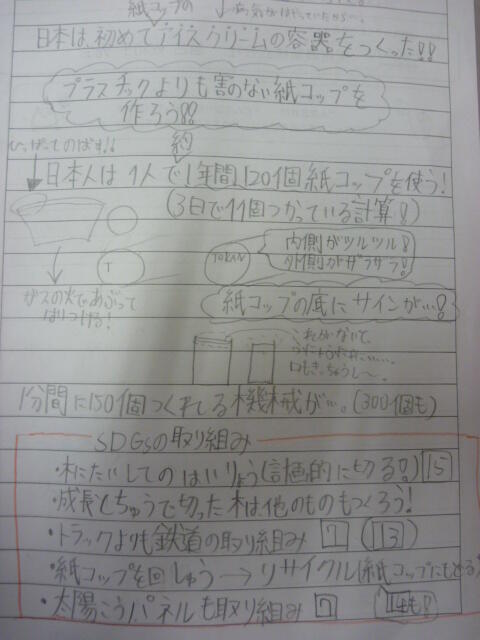 紙コップの
病気がはやっていたから…。
日本は、初めてアイスクリームの容器をつくった!!
プラスチックよりも害のない紙コップを
作ろう!!
ひっぱってのばす!!
約
日本人は1人で1年間120個紙コップを使う!
(3日で1個つかっている計算!)
内側がツルツル!
外側がザラザラ!
T
TOKAN
ガスの火であぶって
はりつける!
紙コップの底にサインが…!
これがないと、
1分間に150個つくれる機械が…。(300個も)
SDGsの取り組み
・木にたいしてのはいりょう(計画的に切る!) 15
・成長とちゅうで切った木は他のものもつくろう!
・トラックよりも鉄道の取り組み 7 (13)
・紙コップを回しゅう→リサイクル(紙コップにもどる)
・太陽こうパネルも取り組み 7